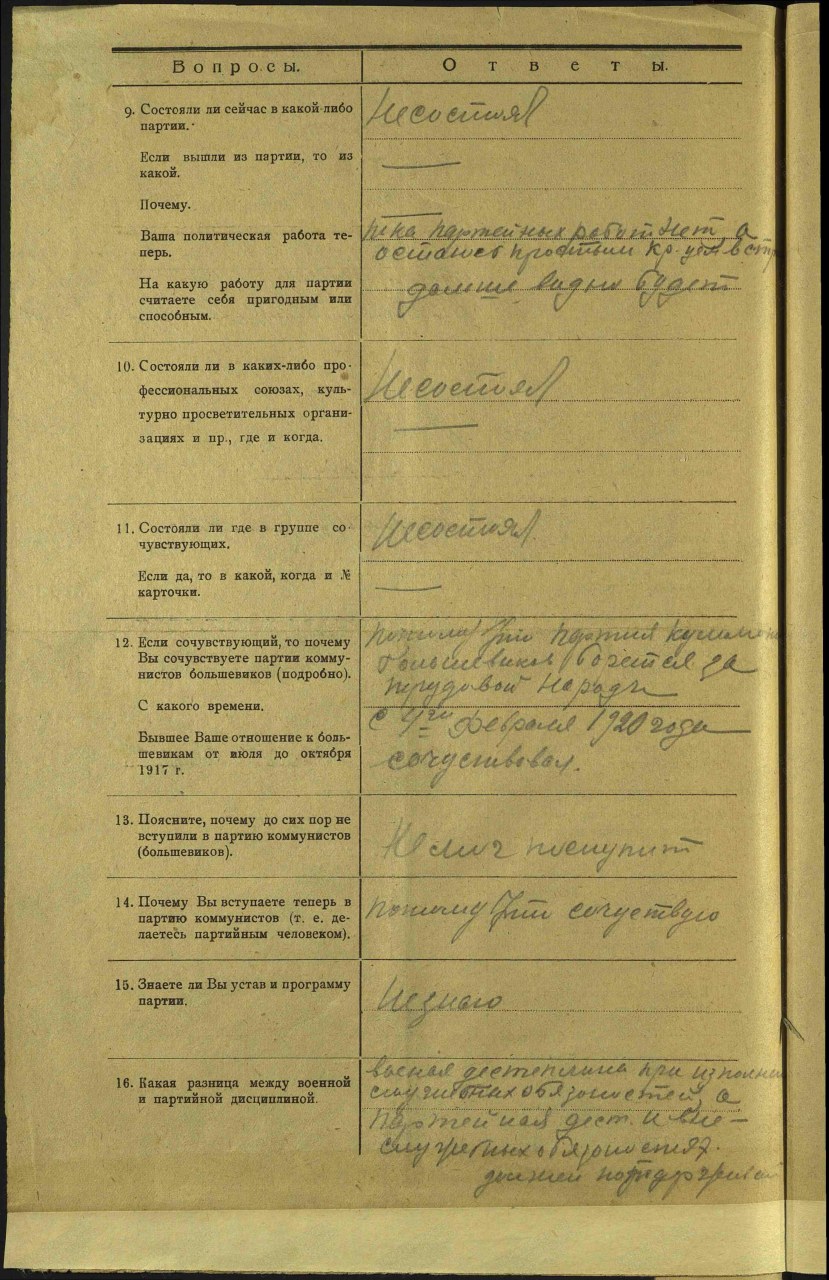 Вопросы.
Ответы.
9. Состояли ли сейчас в какой-либо
партии.
Несостоял
Если вышли из партии, то из
какой.
—
Почему.
—
Ваша политическая работа те-
перь.
пока партейных работ нет а
остаюсь простым кр.
На какую работу для партии
считаете себя пригодным или
способным.
дальше видно будет
10. Состояли ли в каких-либо про-
фессиональных союзах, куль-
турно просветительных органи-
зациях и пр., где и когда.
Несостоял
—
11. Состояли ли где в группе со-
чувствующих.
Несостоял
Если да, то в какой, когда и №
карточки.
—
12. Если сочувствующий, то почему
Вы сочувствуете партии комму-
нистов большевиков (подробно).
потому что партия
большевиков боется за
трудовой народ
С какого времени.
с февраля 1920 года
Бывшее Ваше отношение к боль-
шевикам от июля до октября
1917 г.
сочуствовал.
13. Поясните, почему до сих пор не
вступили в партию коммунистов
(большевиков).
Не мог поступит
14. Почему Вы вступаете теперь в
партию коммунистов (т. е. де-
лаетесь партийным человеком).
потому что сочуствую
15. Знаете ли Вы устав и программу
партии.
Незнаю
16. Какая разница между военной
и партийной дисциплиной.
военая дестеплина при
обязоностей, а
партейная дест. и вне—
служебных обязоностях.
должен